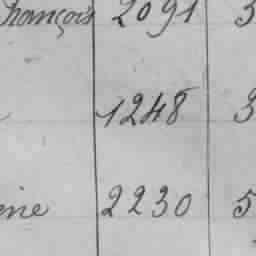 François 2091 3
1248 3
ene 2230 5